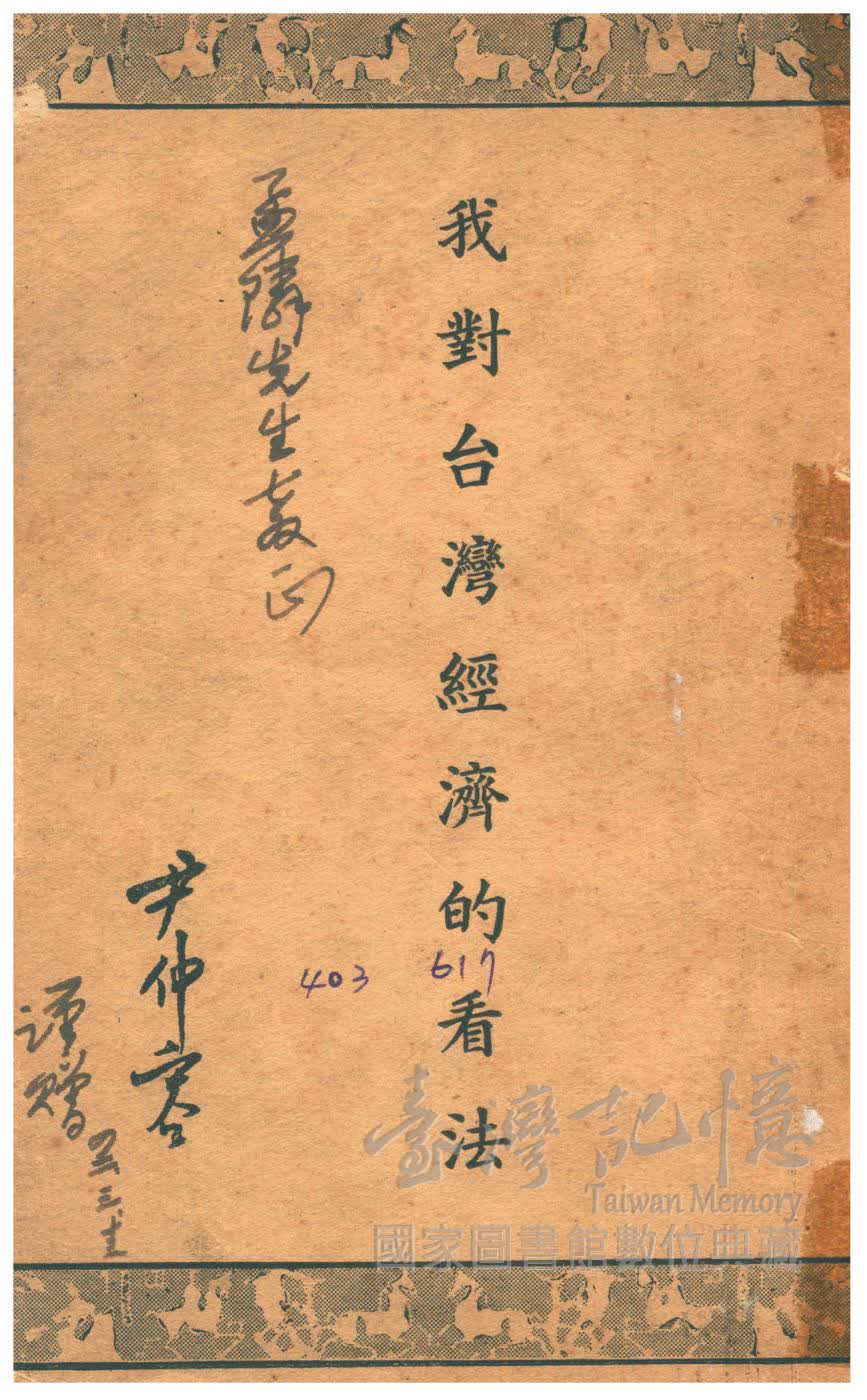 我對台灣經濟的看法
孟隣先生教正
尹仲容
謹贈
403 617
臺灣記憶
Taiwan Memory
國家圖書館數位典藏